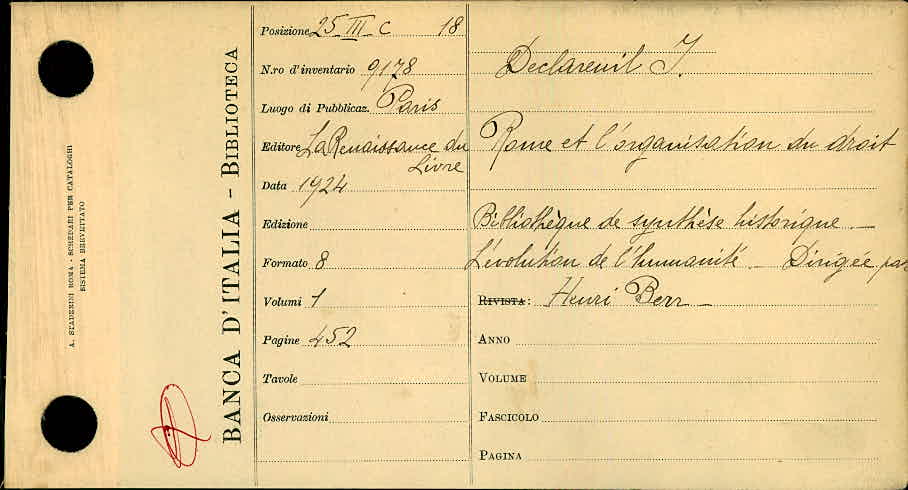 A. STADERINI ROMA - SCHEDARI PER CATALOGHI
SISTEMA BREVETTATO
BANCA D'ITALIA - BIBLIOTECA
Posizione 25 III C 18
N.ro d'inventario 9178
Luogo di Pubblicaz. Paris
Editore La Renaissance du
Livre
Data 1924
Edizione
Formato 8
Volumi 1
Pagine 452
Tavole
Osservazioni
Declareuil J.
Rome et l'organisation du droit
Bibliothèque de synthèse historique —
L'évolution de l'humanité — Dirigée par
RIVISTA: Henri Berr —
ANNO
VOLUME
FASCICOLO
PAGINA